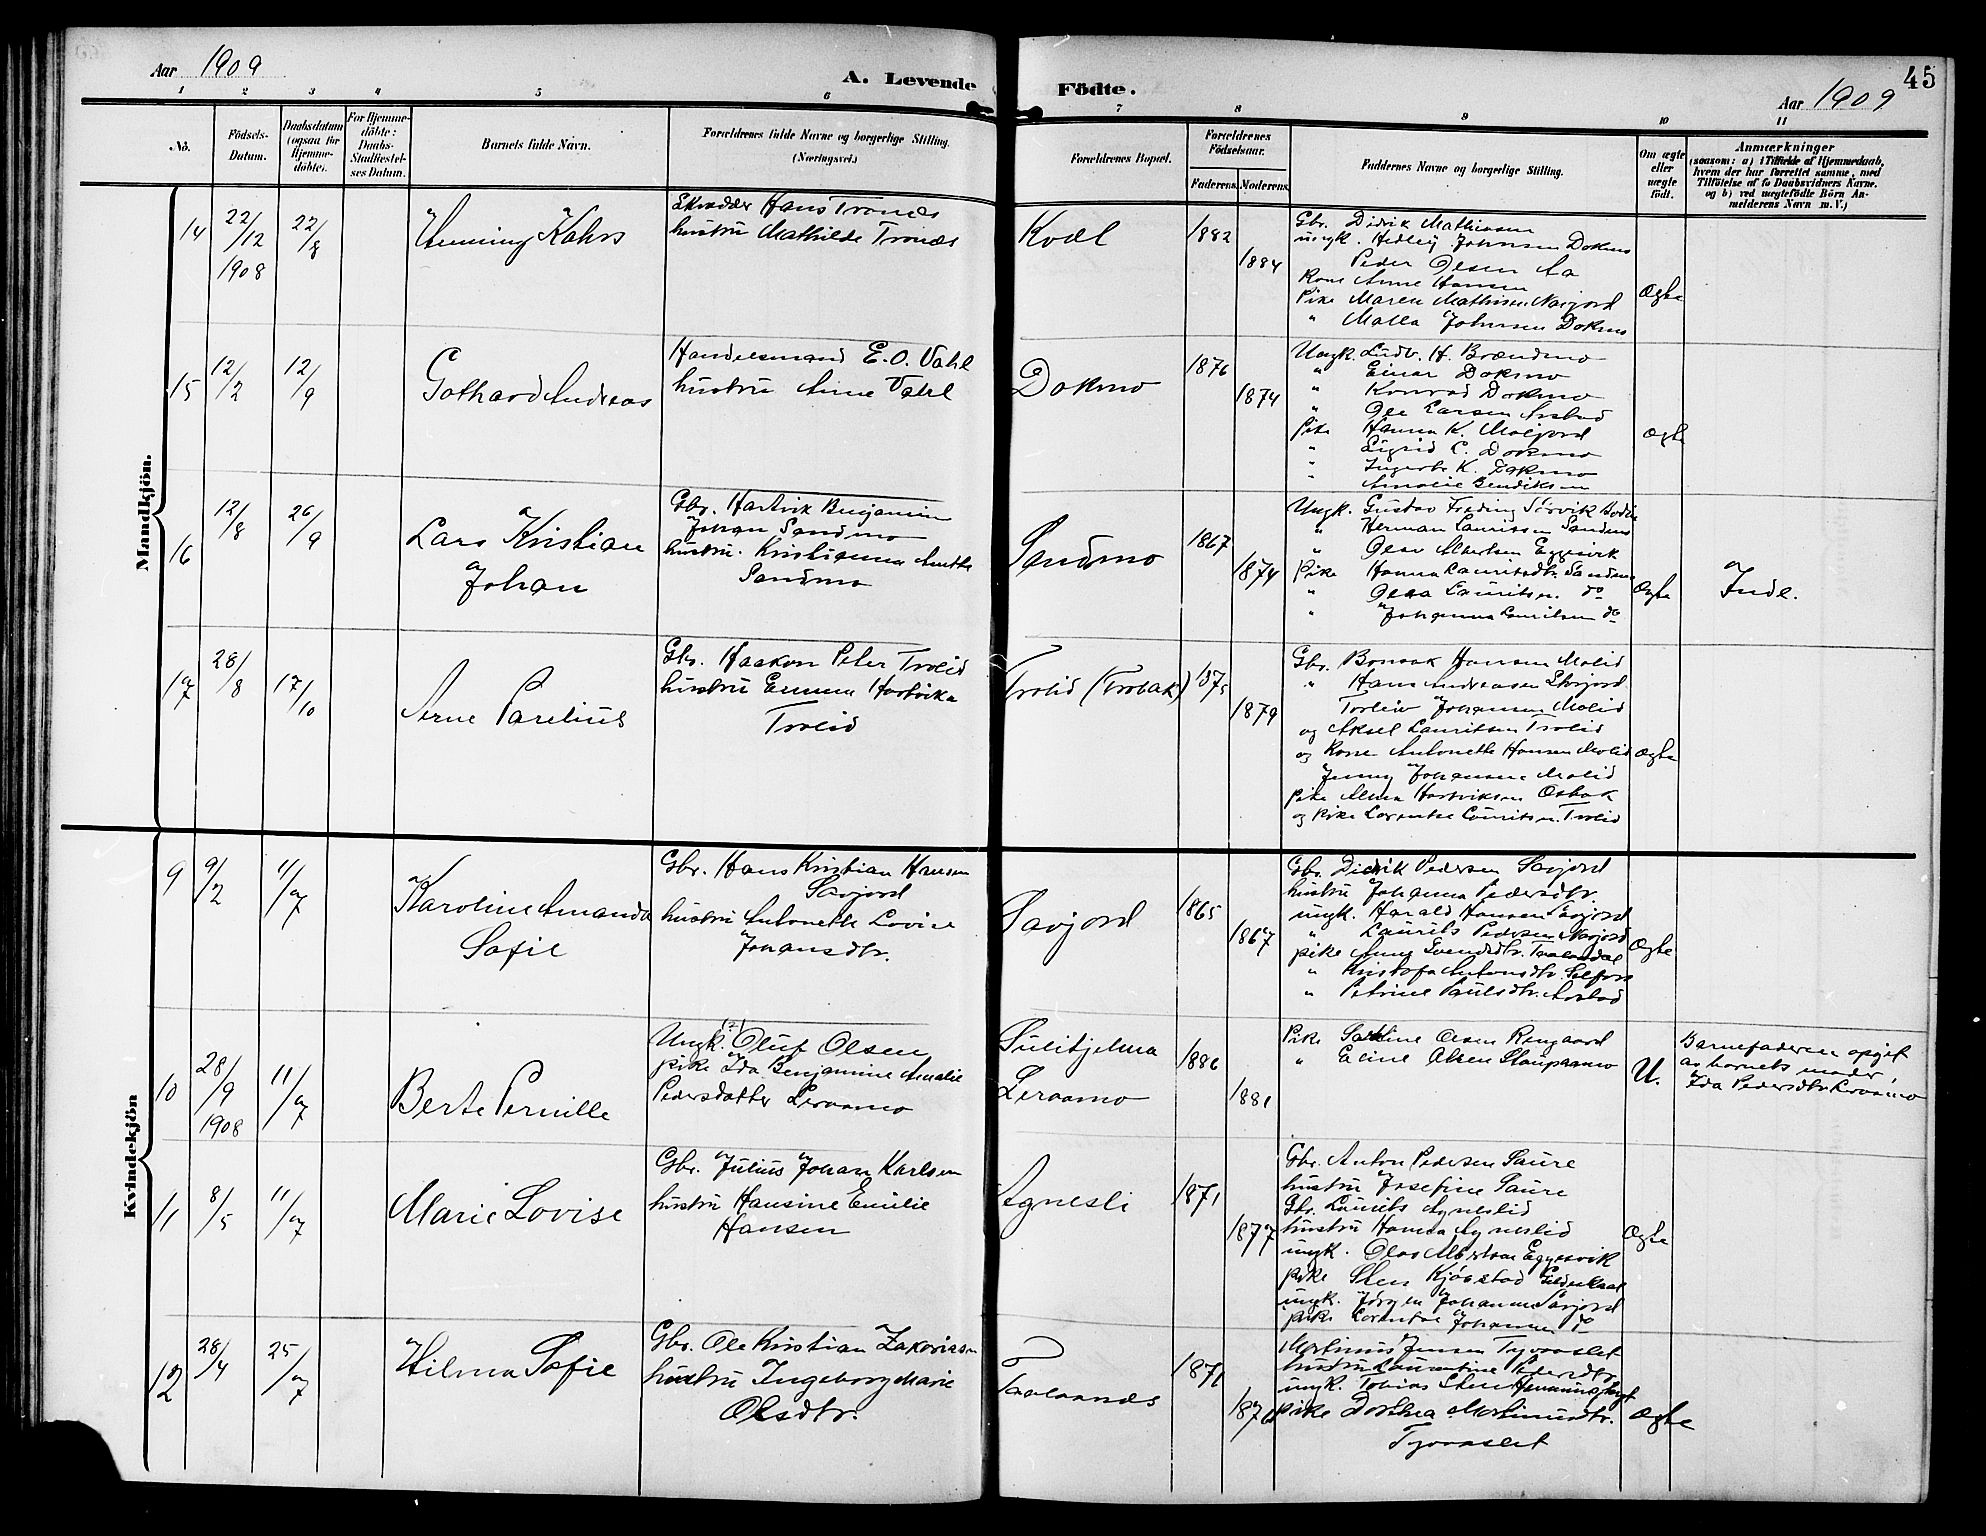 45
Aar 1909
A. Levende Födte.
Aar 1909
1 2 3 4 5 6 7 8 9 10 11
No.
Födsels-Datum.
Daabsdatum (ogsaa for Hjemme-döbte).
For Hjemme-döbte: Daabs-Stadfæstel-ses Datum.
Barnets fulde Navn.
Forældrenes fulde Navne og borgerlige Stilling. (Næringsvei.)
Forældrenes Bopæl.
Forældrenes Födselsaar.
Faderens. Moderens.
Faddernes Navne og borgerlige Stilling.
Om ægte eller uægte födt.
Anmærkninger
(saasom: a) i Tilfælde af Hjemmedaab, hvem der har forrettet samme, med Tilföielse af to Daabsvidners Navne. og b) ved uægtefödte Börn An-melderens Navn m. V.)
Mandkjön.
14
22/12 1908
22/8
Henning Kahrs
Skrædder Hans Tronæs
hustru Mathilde Tronæs
Kvæl
1882
1884
Gbr. Didrik Mathissen
ungk. Hedley Johnsen Dokmo
Peder Olsen Aa
Kone Anne Hansen
Pike Maren Mathisen Navjord
" Malla Johnsen Dokmo
Ægte
15
12/2
12/9
Gothard Andreas
Handelsmand E. O. Vahl
hustru Anne Vahl
Dokmo
1876
1874
Ungk. Ludv. H. Brændmo
" Einar Dokmo
" Konrad Dokmo
" Ole Larsen Arstad
pike Hanna K. Moljord
" Sigrid C. Dokmo
" K. Dokmo
" Amalie Bendiksen
Ægte
16
12/8
26/9
Lars Kristian
Johan
Gbr. Hartvik Benjamin
Johan Sandmo
hustru. Kristianna Anette
Sandmo
Sandmo
1867
1874
Ungk. Gustav Sørvik
" Herman Lauritsen Sandmo
" Olav Albertsen Eggesvik
pike Hanna Lauritsdtr. Sandmo
" Olea Lauritsen do
" Johanna Lauritsen do
Ægte
Inde.
17
28/8
17/10
Arne Parelius
Gbr. Haakon Peter Trolid
hustru Emma Hartvika
Trolid
Trolid (Trobak)
1875
1879
Gbr. Bonsak Hansen Molid
" Hans Andreasen Storjord
Torleiv Johansen Molid
og Aksel Lauritsen Trolid
og Kone Antonette Hansen Molid
Jenny Johansen Molid
pike Alma Hartviksen Osbak
og pike Lorentse Lauritsen Trolid
Ægte
Kvindekjön
9
9/2
11/7
Karoline Amanda
Sofie
Gbr. Hans Kristian Hansen
Savjord
hustru Antonette Lovise
Johansdtr.
Savjord
1865
1867
Gbr. Didrik Pedersen Savjord
hustru Johanna Pedersdtr.
ungk. Harald Hansen Savjord
" Laurits Pedersen Navjord
pike Anna Svendsdtr.
" Kristofa Antonsdtr. Selfors
" Petrine Paulsdtr. Arstad
Ægte
10
28/9 1908
11/7
Berte Pernille
Ungk. (?) Oluf Olsen
pike Ida Benjamine Amalie
Pedersdatter Leraamo
Sulitjelma
Leraamo
1886
1881
Pike Olsen Rengaard
" Eline Olsen Staupaamo
U.
Barnefaderen opgit
av barnets moder,
Ida Pedersdtr. Leraamo
11
8/5
11/7
Marie Lovise
Gbr. Julius Johan Karlsen
hustru Hansine Emilie
Hansen
Agnesli
1871
1877
Gbr. Anton Pedersen Saure
hustru Josefine Saure
Gbr. Laurits Agneslid
hustru Hanna Agneslid
ungk. Olav Albertsen Eggesvik
pike Kjöbstad Gildeskaal
ungk. Jörgen Johansen Savjord
pike Lorentse Johansen do
Ægte
12
28/4
25/7
Hilma Sofie
Gbr. Ole Kristian Zakariasen
hustru Ingeborg Marie
Olsdtr.
Taalaanæs
1871
1876
Martinus Jensen Tyvaaslet
hustru Laurentine Pedersdtr.
ungk. Tobias Sten
pike Dorthea Martinusdtr.
Tyvaaslet
Ægte